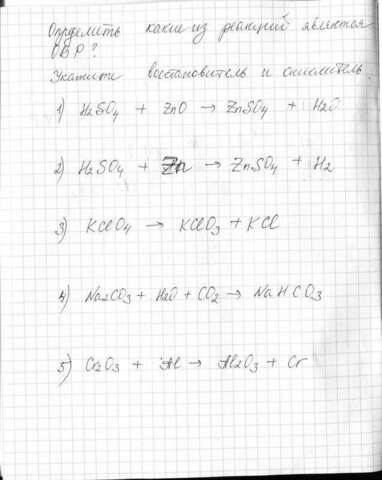 Определить какие из реакций являются
ОВР?
Укажите востановитель и окислитель.
1) H₂SO₄ + ZnO → ZnSO₄ + H₂O
2) H₂SO₄ + Zn → ZnSO₄ + H₂
3) KClO₄ → KClO₃ + KCl
4) Na₂CO₃ + H₂O + CO₂ → NaHCO₃
5) Cr₂O₃ + Al → Al₂O₃ + Cr